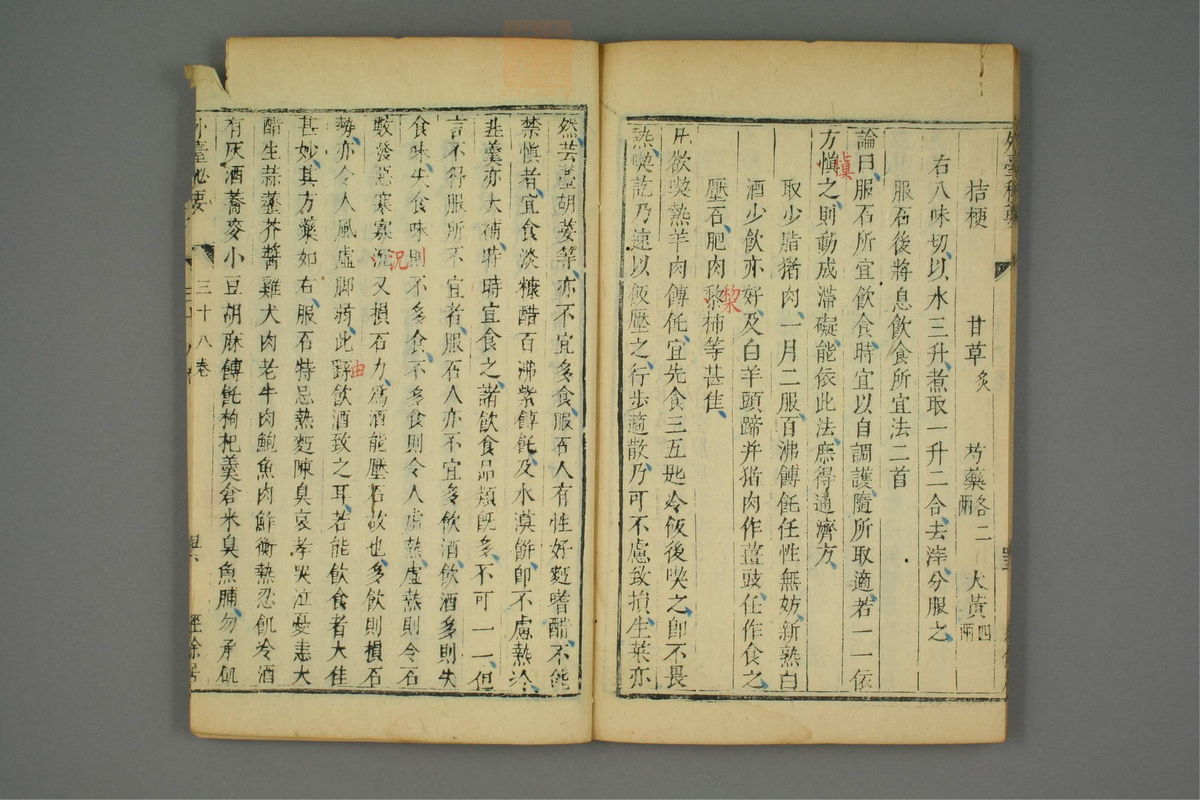 桔梗 甘草炙 芍藥各二兩 大黃四兩
右八味切以水三升煮取一升二合去滓分服之
服石後將息飲食所宜法二首
論曰服石所宜飲食時宜以自調護隨所取適若一一依
方慎之則動成滯礙能依此法庶得通濟方
慎
取少脂猪肉一月二服百沸餺飥任性無妨新熟白
酒少飲亦好及白羊頭蹄并猪肉作薑豉任作食之
壓石肥肉黎柿等甚佳
黎
凡欲喫熱羊肉餺飥宜先食三五匙冷飯後喫之卽不畏
熱喫訖乃遠以飯壓之行步適散乃可不慮致損生菜亦
然芸薹胡荽等亦不宜多食服石人有性好麪嗜醋不能
禁慎者宜食淡糠醋百沸紫餺飥及水漠餅卽不慮熱冷
韭羹亦大補時時宜食之諸飲食品類旣多不可一一但
言不得服所不宜者服石人亦不宜多飲酒飲酒多則失
食味失食味則不多食不多食則令人虛熱虛熱則令石
則
駛發惡寒寡況又損石力爲酒能壓石故也多飲則損石
況
勢亦令人風虛脚弱此野飲酒致之耳若能飲食者大佳
由
甚妙其方藥如右服石特忌熱麪陳臭哀孝哭泣憂恚大
醋生蒜薹芥醬雞犬肉老牛肉鮑魚肉鮓衝熱忍飢冷酒
有灰酒蕎麥小豆胡麻餺飥枸杞羹倉米臭魚脯勿承飢
外臺秘要 三十八卷 經餘居